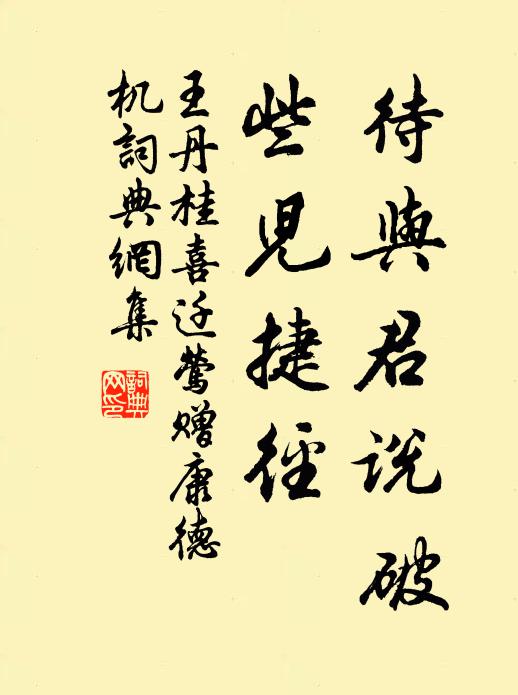 待與君説破
些兒捷徑
王丹桂喜迁莺赠康德
机詞典網集
詞典
网印